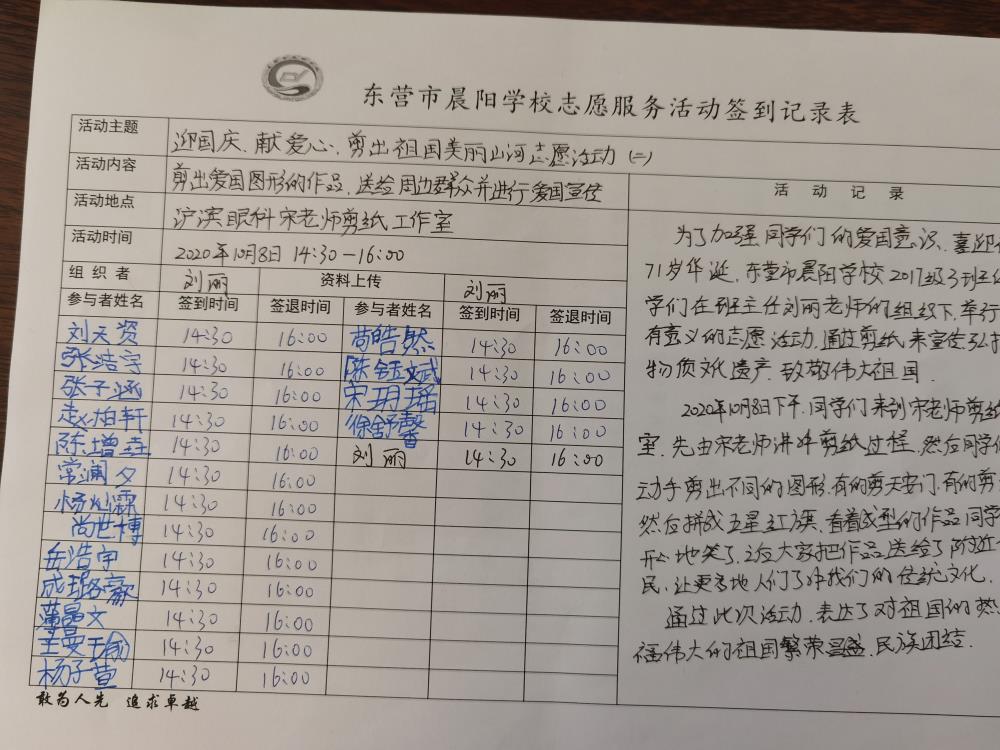 东营市晨阳学校志愿服务活动签到记录表
活动主题 迎国庆、献爱心、剪出祖国美丽山河志愿活动(二)
活动内容 剪出爱国图形的作品、送给周边群众并进行爱国宣传
活动地点 沪滨眼科宋老师剪纸工作室
活动时间 2020年10月8日 14:30—16:00
组织者 刘丽 资料上传 刘丽
参与者姓名 签到时间 签退时间 参与者姓名 签到时间 签退时间
刘天资 14:30 16:00 苘皓然 14:30 16:00
张浩宇 14:30 16:00 陈钰斌 14:30 16:00
张子涵 14:30 16:00 宋玥瑶 14:30 16:00
赵柏轩 14:30 16:00 徐舒馨 14:30 16:00
陈增垚 14:30 16:00 刘丽 14:30 16:00
常澜夕 14:30 16:00
杨灿霖 14:30 16:00
尚世博 14:30 16:00
岳浩宇 14:30 16:00
成璐豪 14:30 16:00
薄晶文 14:30 16:00
王曼 14:30 16:00
杨子萱 14:30 16:00
敢为人先 追求卓越
活动记录
为了加强同学们的爱国意识、喜迎
71岁华诞、东营市晨阳学校2017级3班
学们在班主任刘丽老师的组织下、举行
有意义的志愿活动、通过剪纸来宣传弘扬
物质文化遗产、致敬伟大祖国.
2020年10月8日下午、同学们来到宋老师剪纸
室、先由宋老师讲中剪纸过程、然后同学们
动手剪出不同的图形、有的剪天安门、有的剪
然后拼成五星红旗、看着成型的作品同学
开心地笑了、之后大家把作品送给了附近
民、让更多地人们了冲我们的传统文化.
通过此次活动、表达了对祖国的热
福伟大的祖国繁荣昌盛、民族团结.